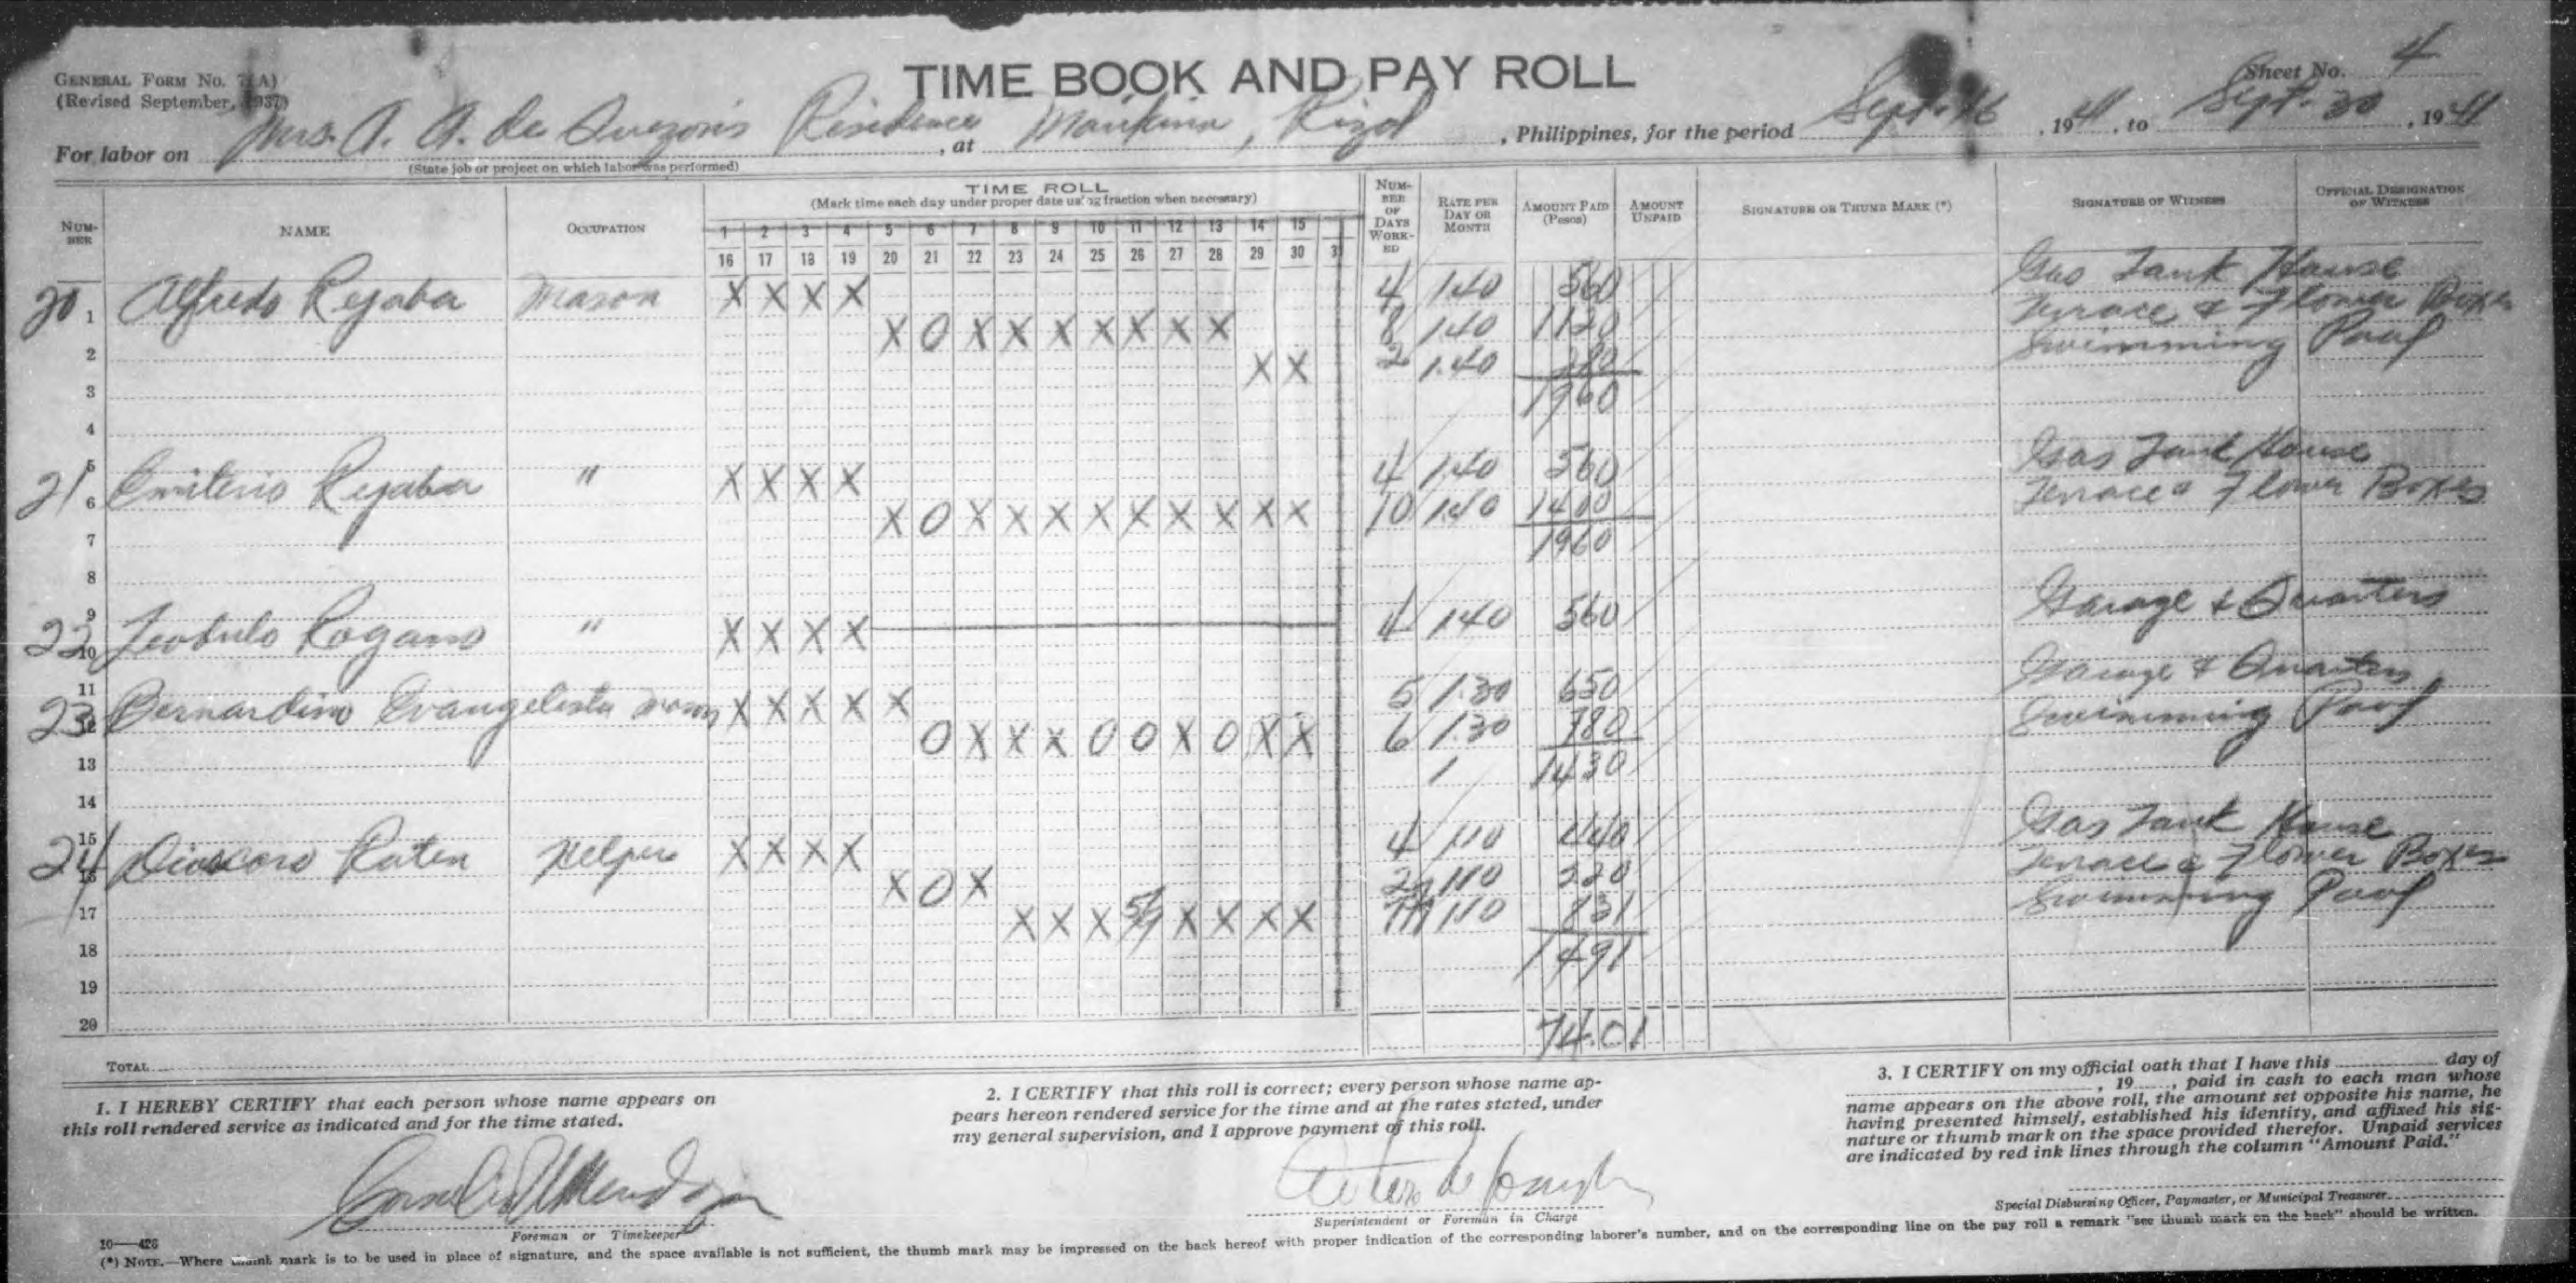 GENERAL FORM No. 7(A)
(Revised September, 1937)
TIME BOOK AND PAY ROLL
Sheet No. 4
For labor on Mrs. A. A. de Quezon's Residence, at Marikina, Rizal, Philippines, for the period Sept. 16, 1941, to Sept. 30, 1941
(State job or project on which labor was performed)
NUMBER NAME OCCUPATION TIME ROLL NUMBER OF DAYS WORKED RATE PER DAY OR MONTH AMOUNT PAID (Pesos) AMOUNT UNPAID SIGNATURE OR THUMB MARK (*) SIGNATURE OF WITNESS OFFICIAL DESIGNATION OF WITNESS
(Mark time each day under proper date using fraction when necessary)
1 2 3 4 5 6 7 8 9 10 11 12 13 14 15
16 17 18 19 20 21 22 23 24 25 26 27 28 29 30 3
20 1 Alfredo Rejaba Mason X X X X 4 1.40 560 Gas Tank House
2 X O X X X X X X X 8 1.40 1120 Terrace & Flower Boxes
3 X X 2 1.40 280 Swimming Pool
4 1960
21 5 Emiterio Rejaba " X X X X 4 1.40 560 Gas Tank House
6 X O X X X X X X X X X 10 1.40 1400 Terrace & Flower Boxes
7 1960
8
9
22 10 Rogano " X X X X 4 1.40 560 Garage & Quarters
11
23 12 Bernardino Evangelista Mason X X X X X 5 1.30 650 Garage & Quarters
O X X X O O X O X X 6 1.30 780 Swimming Pool
13 1 1430
14
15
24 16 Dioscoro Raten Helper X X X X 4 1.10 440 Gas Tank House
X O X 2 1.10 220 Terrace & Flower Boxes
17 X X X 5/9 X X X X 1.10 831 Swimming Pool
18 1491
19
20 74.01
TOTAL
1. I HEREBY CERTIFY that each person whose name appears on
this roll rendered service as indicated and for the time stated.
Foreman or Timekeeper
2. I CERTIFY that this roll is correct; every person whose name ap-
pears hereon rendered service for the time and at the rates stated, under
my general supervision, and I approve payment of this roll.
Superintendent or Foreman in Charge
3. I CERTIFY on my official oath that I have this day of
, 19, paid in cash to each man whose
name appears on the above roll, the amount set opposite his name, he
having presented himself, established his identity, and affixed his sig-
nature or thumb mark on the space provided therefor. Unpaid services
are indicated by red ink lines through the column "Amount Paid."
Special Disbursing Officer, Paymaster, or Municipal Treasurer
10—426
(*) NOTE.—Where thumb mark is to be used in place of signature, and the space available is not sufficient, the thumb mark may be impressed on the back hereof with proper indication of the corresponding laborer's number, and on the corresponding line on the pay roll a remark "see thumb mark on the back" should be written.